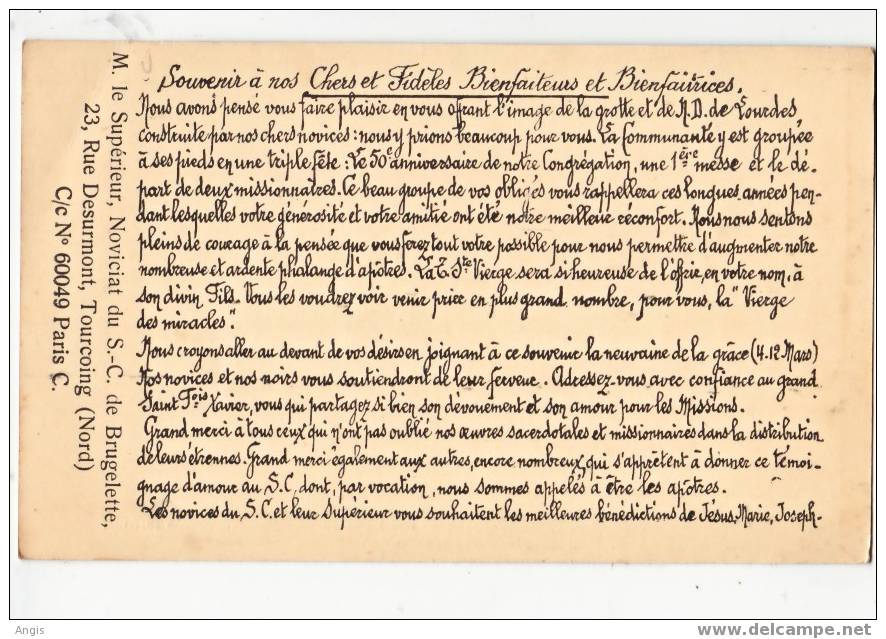 Souvenir à nos Chers et Fidèles Bienfaiteurs et Bienfaitrices.
Nous avons pensé vous faire plaisir en vous offrant l'image de la grotte et de N.D. de Lourdes,
construite par nos chers novices : nous y prions beaucoup pour vous. La Communauté y est groupée
à ses pieds en une triple fête : Le 50e anniversaire de notre Congrégation, une 1ère messe et le dé-
part de deux missionnaires. Ce beau groupe de vos obligés vous rappellera ces longues années pen-
dant lesquelles votre générosité et votre amitié ont été notre meilleur réconfort. Nous nous sentons
pleins de courage à la pensée que vous ferez tout votre possible pour nous permettre d'augmenter notre
nombreuse et ardente phalange d'apôtres. La T. Ste Vierge sera si heureuse de l'offrir, en votre nom, à
son divin Fils. Vous les voudrez voir venir prier en plus grand nombre, pour vous, la "Vierge
des miracles".
Nous croyons aller au devant de vos désirs en joignant à ce souvenir la neuvaine de la grâce (4-12 Mars)
Nos novices et nos noirs vous soutiendront de leur ferveur. Adressez-vous avec confiance au grand
Saint Fçois Xavier, vous qui partagez si bien son dévouement et son amour pour les Missions.
Grand merci à tous ceux qui n'ont pas oublié nos œuvres sacerdotales et missionnaires dans la distribution
de leurs étrennes. Grand merci également aux autres, encore nombreux, qui s'apprêtent à donner ce témoi-
gnage d'amour au S.C, dont, par vocation, nous sommes appelés à être les apôtres.
Les novices du S.C. et leur Supérieur vous souhaitent les meilleures bénédictions de Jésus, Marie, Joseph-
M. le Supérieur, Noviciat du S.-C. de Brugelette,
23, Rue Desurmont, Tourcoing (Nord)
C/c N° 60049 Paris C.
Angis
delcampe.net